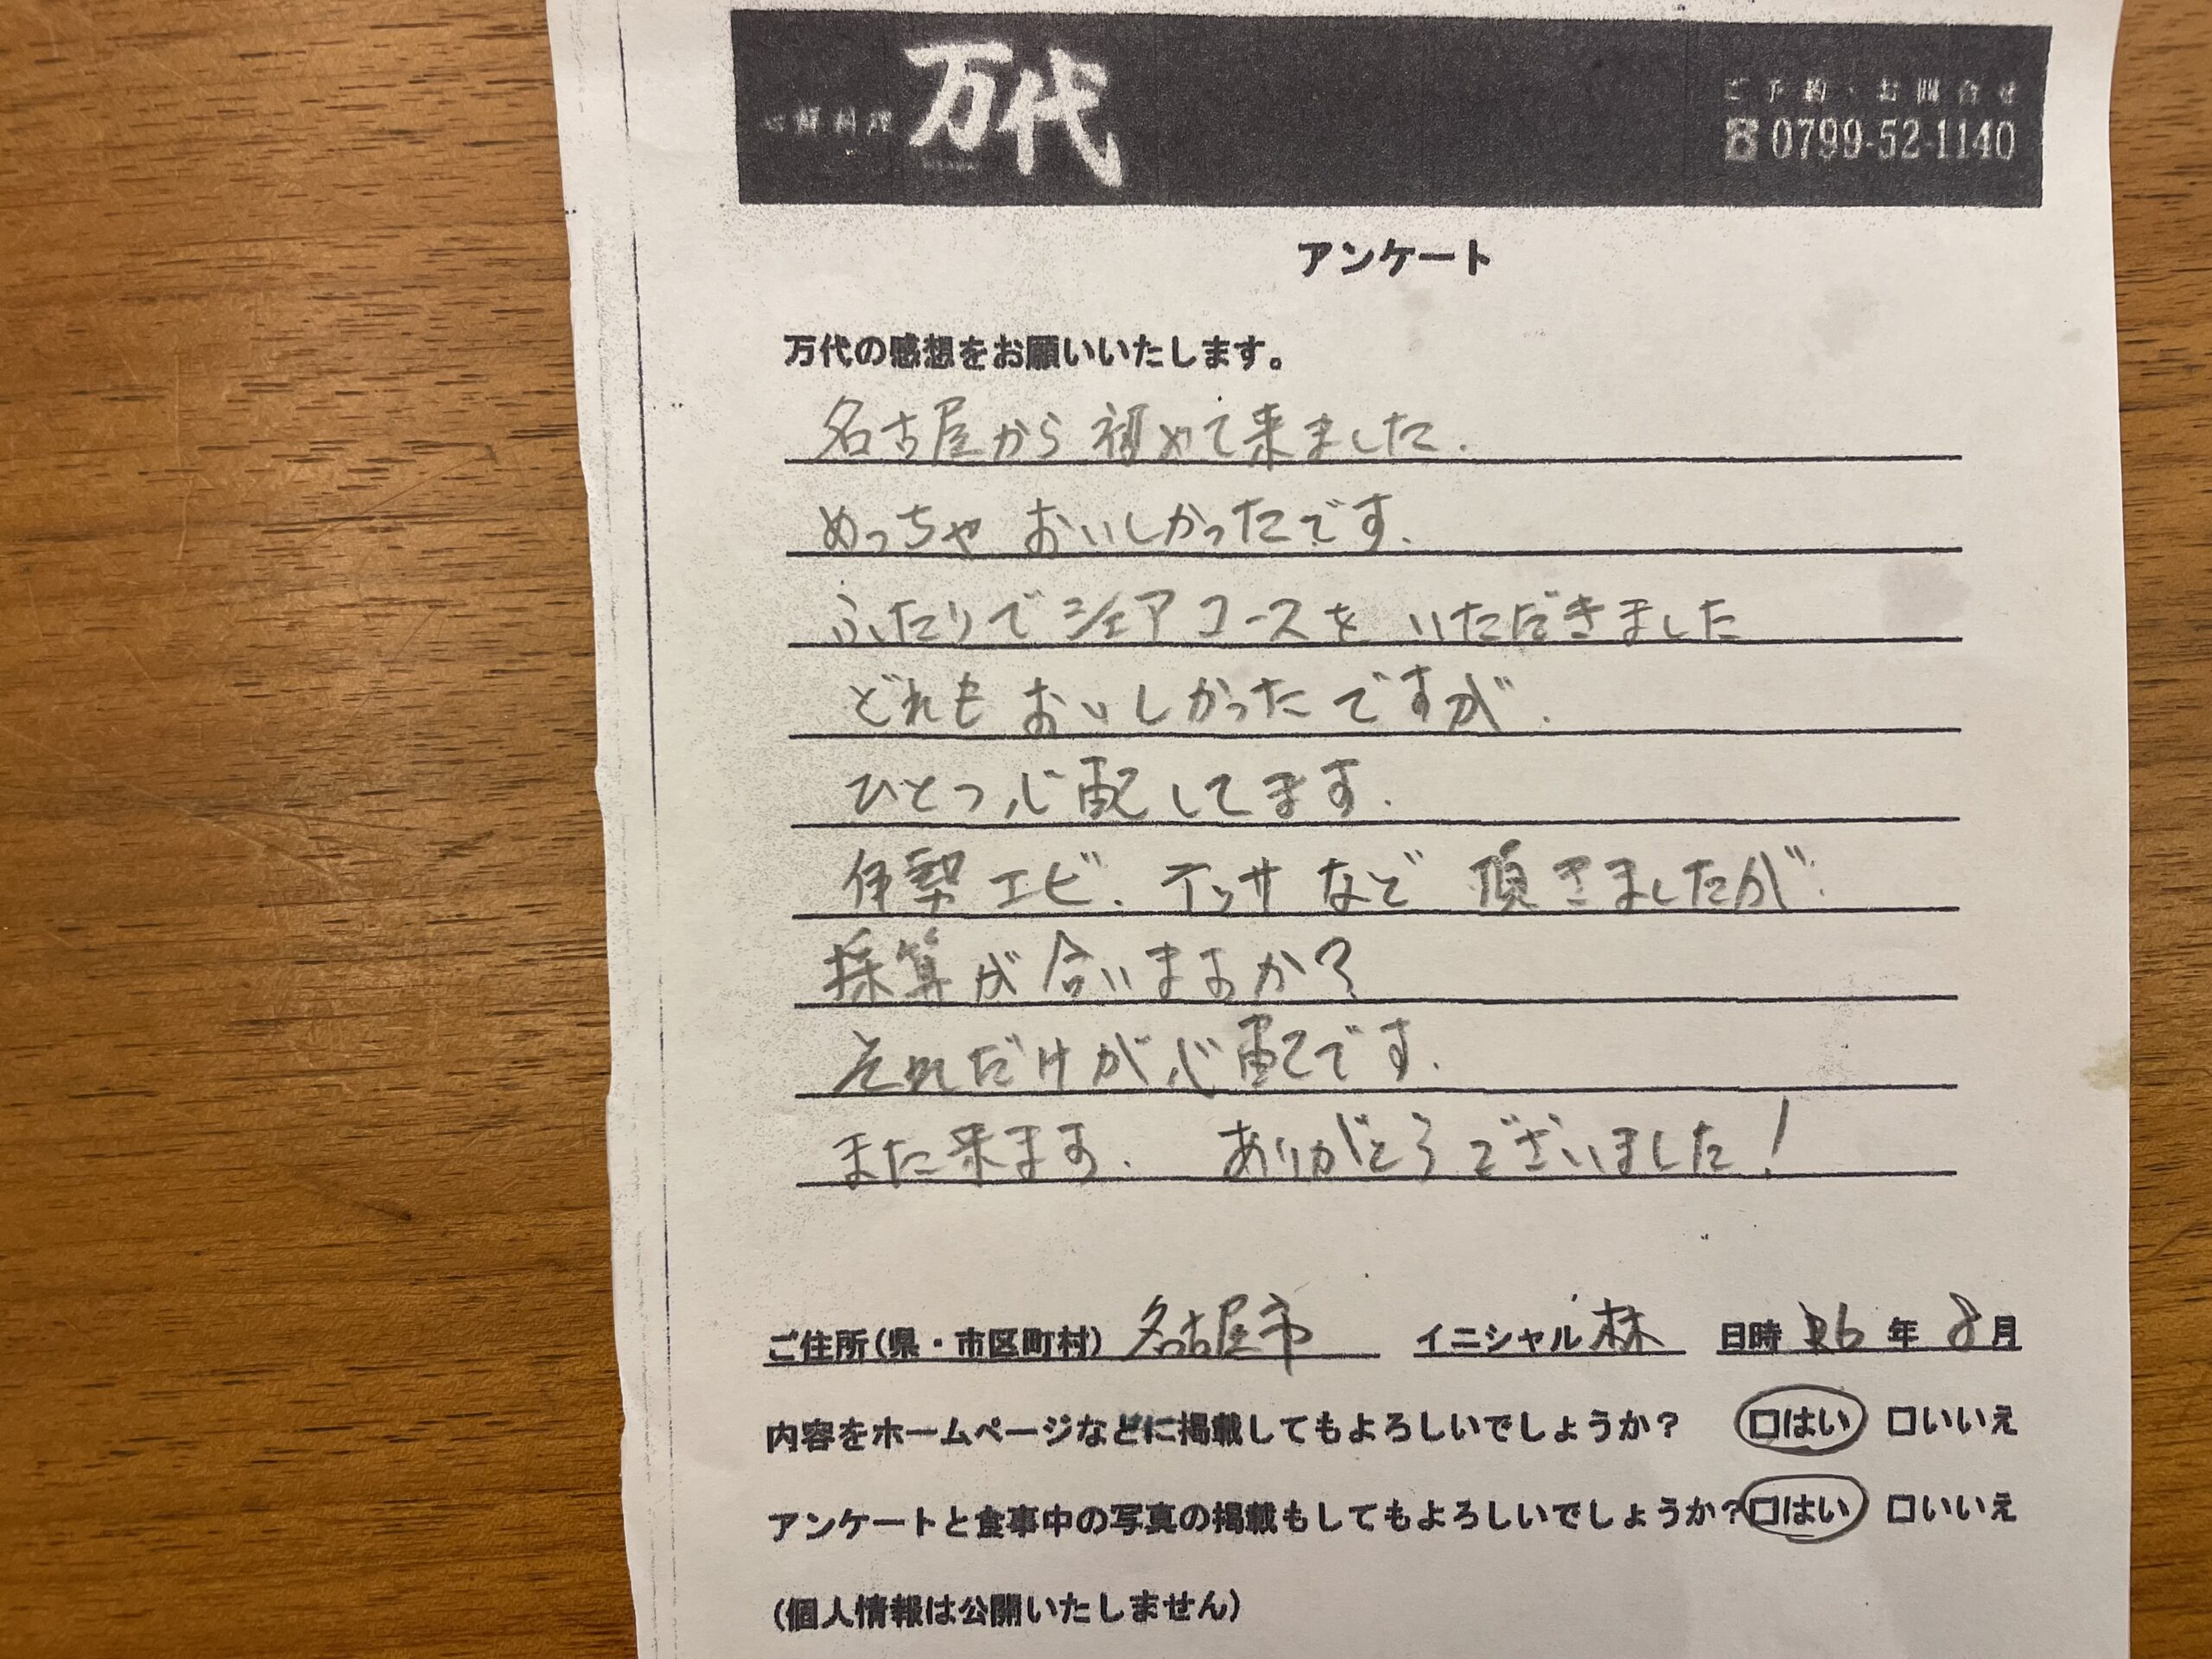 万代
ご予約・お問合せ
☎0799-52-1140
アンケート
万代の感想をお願いいたします。
名古屋から初めて来ました.
めっちゃ おいしかったです.
ふたりでシェアコースを いただきました
どれも おいしかったですが.
ひとつ心配してます.
伊勢エビ. テッサなど 頂きましたが.
採算が合いますか?
それだけが心配です.
また来ます. ありがとうございました!
ご住所(県・市区町村) 名古屋市 イニシャル 林 日時 R6 年 8月
内容をホームページなどに掲載してもよろしいでしょうか? □はい □いいえ
アンケートと食事中の写真の掲載もしてもよろしいでしょうか? □はい □いいえ
(個人情報は公開いたしません)